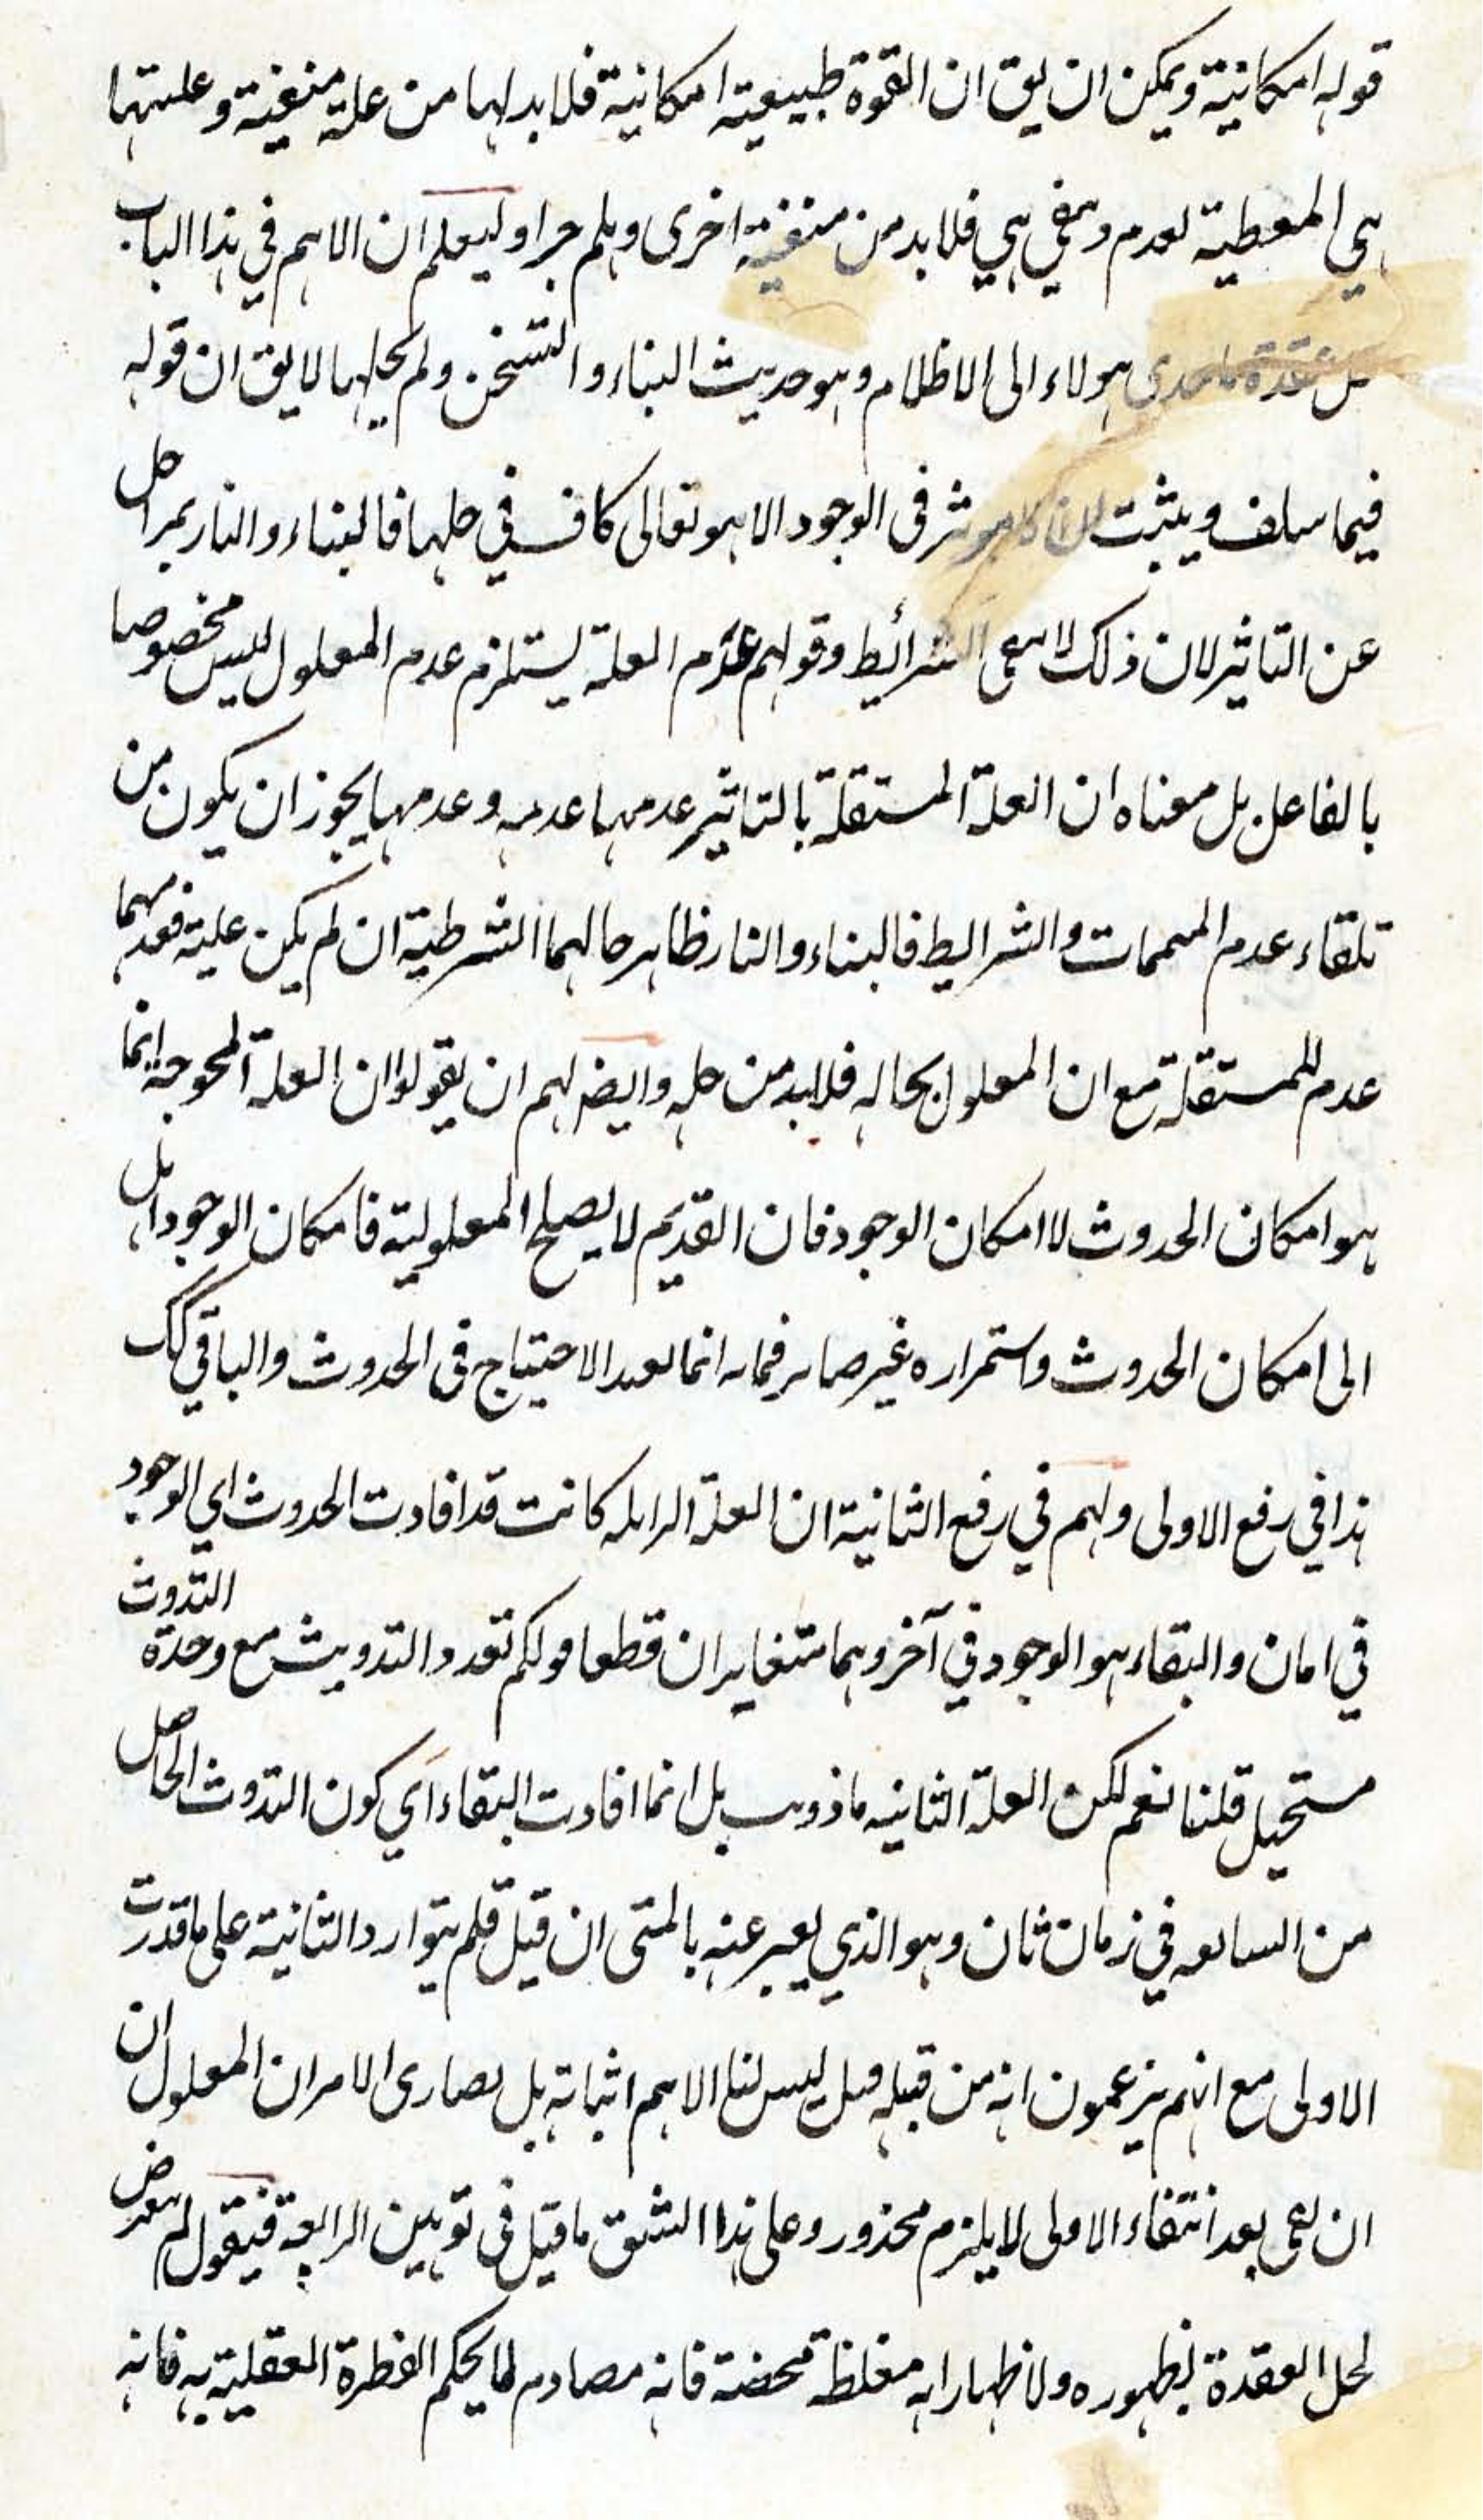 قوله امكانية ويمكن ان يق ان القوة طبيعية امكانية فلا بد لها من علة منفية وعلتها
هي المعطية لعدم هي فلا بد من منفية اخرى وهلم جرا وليعلم ان الاهم في هذا الباب
عقدة هولاء الى الاظلام وهو حديث البناء والتسخن ولم يحلها لا يق ان قوله
فيما سلف ويثبت مؤثر في الوجود الا هو تعالى كاف في حلها فالبناء والنار بمراحل
عن التاثير لان ذلك الشرائط وقولهم عدم العلة يستلزم عدم المعلول ليس مخصوصا
بالفاعل بل معناه ان العلة المستقلة بالتاثير عدمها عدمه وعدمها يجوز ان يكون من
تلقاء عدم المتممات والشرايط فالبناء والنار ظاهر حالهما الشرطية ان لم يكن علية فعدمهما
عدم للمستقلة مع ان المعلول بحاله فلا بد من حله وايضا لهم ان يقولوا ان العلة المحوجة انما
هو امكان الحدوث لا امكان الوجود فان القديم لا يصلح المعلولية فامكان الوجود
الى امكان الحدوث واستمراره غير انما الاحتياج في الحدوث والباقي كك
هذا في رفع الاولى ولهم في رفع الثانية ان العلة الزايلة كانت قد افادت الحدوث اي الوجود
في امان والبقاء هو الوجود في آخر وهما متغايران قطعا قولكم تعدد التدويث مع وحدة التذوت
مستحيل قلنا نعم لكن العلة الثانية بل انما افادت البقاء اي كون التذوت الحاصل
من السابقة في زمان ثان وهو الذي يعبر عنه بالمتى ان قيل فلم يتوارد الثانية على ما قدرت
الاولى مع انهم يزعمون انه من قبله قيل ليس لنا الاهم اثباته بل قصارى الامر ان المعلول ان
ان بقي بعد انتفاء الاولى لا يلزم محذور وعلى هذا الشق ما قيل في توهين الرابعة فيقول لم يتعرض
لحل العقدة لظهوره ولاظهار انه مغلظة محضة فانه مصادم لما يحكم الفطرة العقلية به فانه